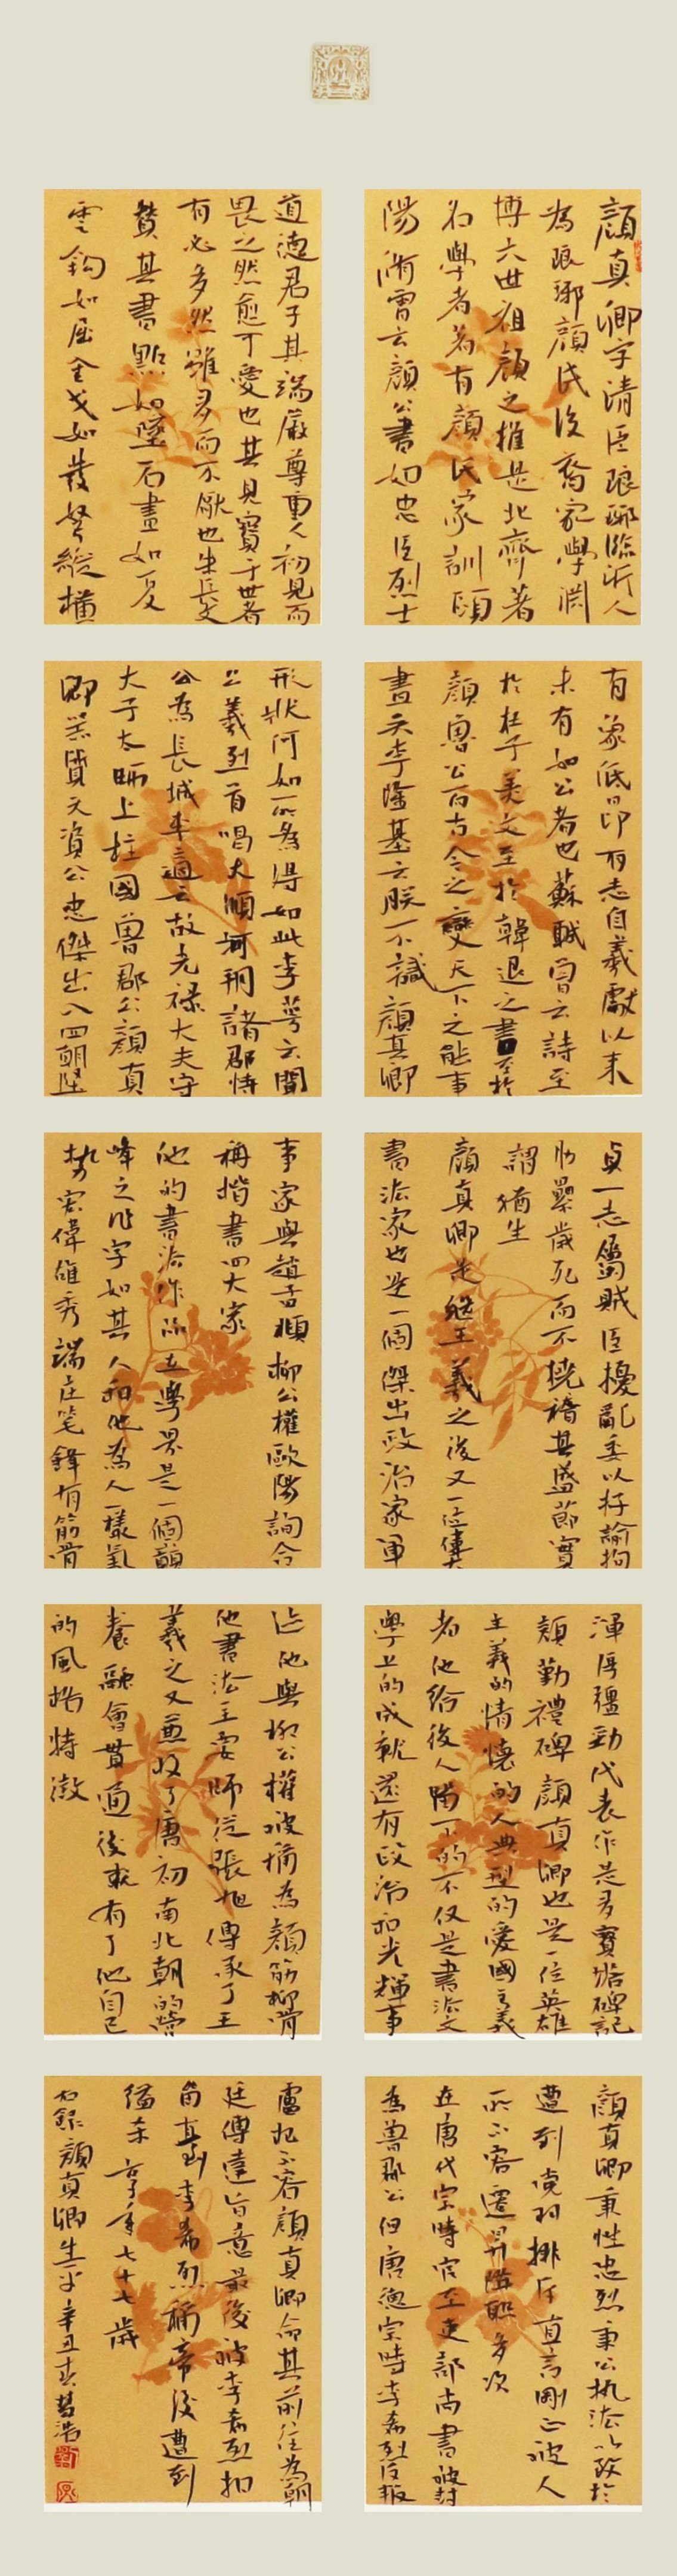 顏真卿字清臣琅琊臨沂人
為琅琊顏氏後裔家學淵
博六世祖顏之推是北齊著
名學者著有顏氏家訓
陽脩嘗云顏公書如忠臣烈士
道德君子其端嚴尊重人初見而
畏之然愈可愛也其見寶于世者
有必多然雖多而不厭也朱長文
贊其書點如墜石畫如夏
雲鈎如屈金戈如發弩縱橫
有象低昂有志自羲獻以來
未有如公者也蘇軾嘗云詩至
於杜子美文至於韓退之書至於
顏魯公而古今之變天下之能事
畫矣李隆基云朕不識顏真卿
形狀何如所為得如此李萼云聞
公羲烈首唱大順河朔諸郡恃
公為長城李適云故光祿大夫守
太子太師上柱國魯郡公顏真
卿器質天資公忠傑出入四朝堅
貞一志屬賊臣擾亂委以存諭拘
肋累歲死而不撓稽其盛節實
謂猶生
顏真卿是繼王羲之後又一位偉大
書法家也是一個傑出政治家軍
事家與趙孟頫柳公權歐陽詢合
稱楷書四大家
他的書法作品在學界是一個顛
峰之作字如其人和他為人一樣氣
勢宏偉雄秀端庄笔鋒有筋骨
渾厚彊勁代表作是多寶塔碑記
顏勤禮碑顏真卿也是一位英雄
主義的情懷的人典型的愛國主義
者他給後人留下的不仅是書法文
學上的成就還有政治和光輝事
迹他與柳公權被稱為顏筋柳骨
他書法主要師從張旭傳承了王
羲之又兼收了唐初南北朝的營
養融會貫通後就有了他自己
的風格特澂
顏真卿秉性忠烈秉公执法以致於
遭到黨羽排斥直言剛正被人
所不容遷昇降职多次
在唐代宗時官至吏部尚書被封
為魯郡公但唐德宗時李希烈反叛
盧杞不容顏真卿命其前往為朝
廷傳達旨意最後被李希烈扣
留直到李希烈稱帝後遭到
縊杀享年七十七歲
右録顏真卿生平辛丑